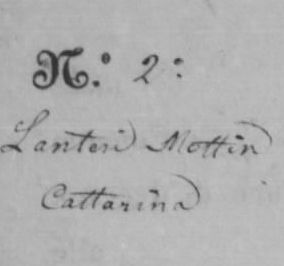 N.° 2:
Lanteri Mottin
Cattarina